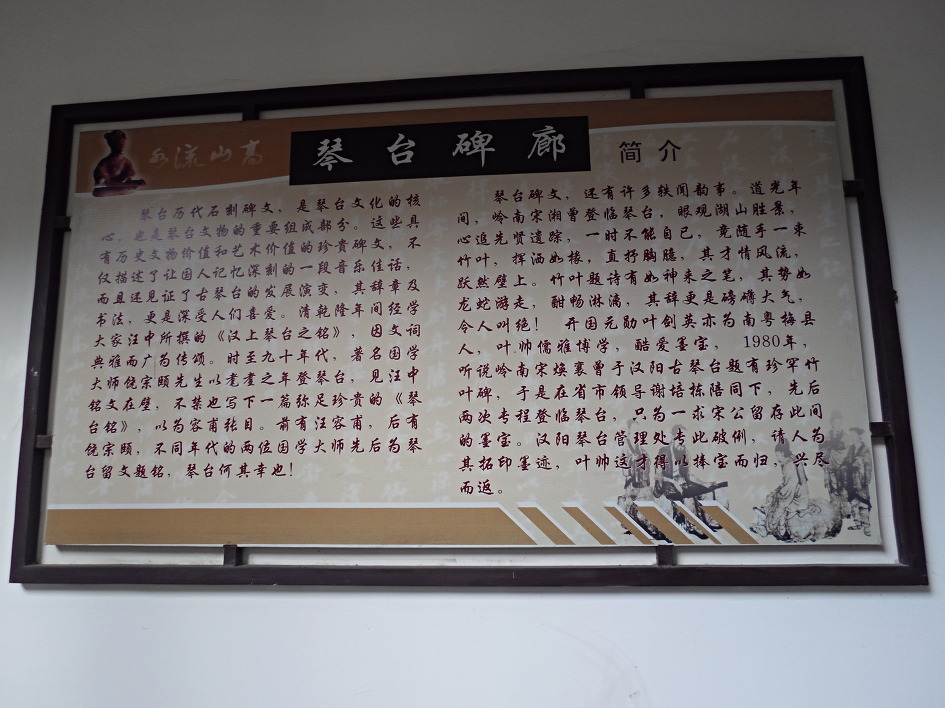 水流山高
琴台碑廊
简介
琴台历代石刻碑文，是琴台文化的核
心，也是琴台文物的重要组成部分。这些具
有历史文物价值和艺术价值的珍贵碑文，不
仅描述了让国人记忆深刻的一段音乐佳话，
而且还见证了古琴台的发展演变，其辞章及
书法，更是深受人们喜爱。清乾隆年间经学
大家汪中所撰的《汉上琴台之铭》，因文词
典雅而广为传颂。时至九十年代，著名国学
大师饶宗颐先生以耄耋之年登琴台，见汪中
铭文在壁，不禁也写下一篇弥足珍贵的《琴
台铭》，以为容甫张目。前有汪容甫，后有
饶宗颐，不同年代的两位国学大师先后为琴
台留文题铭，琴台何其幸也！
琴台碑文，还有许多轶闻韵事。道光年
间，岭南宋湘曾登临琴台，眼观湖山胜景，
心追先贤遗踪，一时不能自已，竟随手一束
竹叶，挥洒如椽，直抒胸臆，其才情风流，
跃然壁上。竹叶题诗有如神来之笔，其势如
龙蛇游走，酣畅淋漓，其辞更是磅礴大气，
令人叫绝！ 开国元勋叶剑英亦为南粤梅县
人，叶帅儒雅博学，酷爱墨宝， 1980年，
听说岭南宋焕襄曾于汉阳古琴台题有珍罕竹
叶碑，于是在省市领导谢培栋陪同下，先后
两次专程登临琴台，只为一求宋公留存此间
的墨宝。汉阳琴台管理处专此破例，请人为
其拓印墨迹，叶帅这才得以捧宝而归，兴尽
而返。